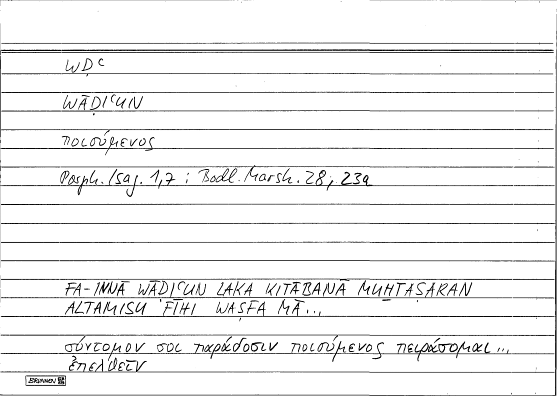 WḌʿ
WĀḌIʿUN
ποιούμενος
Porph. Isag. 1,7 ; Bodl. Marsh. 28, 23a
FA-INNĀ WĀḌIʿUN LAKA KITĀBANĀ MUḪTAṢARAN
ALTAMISU FĪHI WAṢFA MĀ...
σύντομόν σοι παράδοσιν ποιούμενος πειράσομαι...
ἐπελθεῖν
BRUNNEN